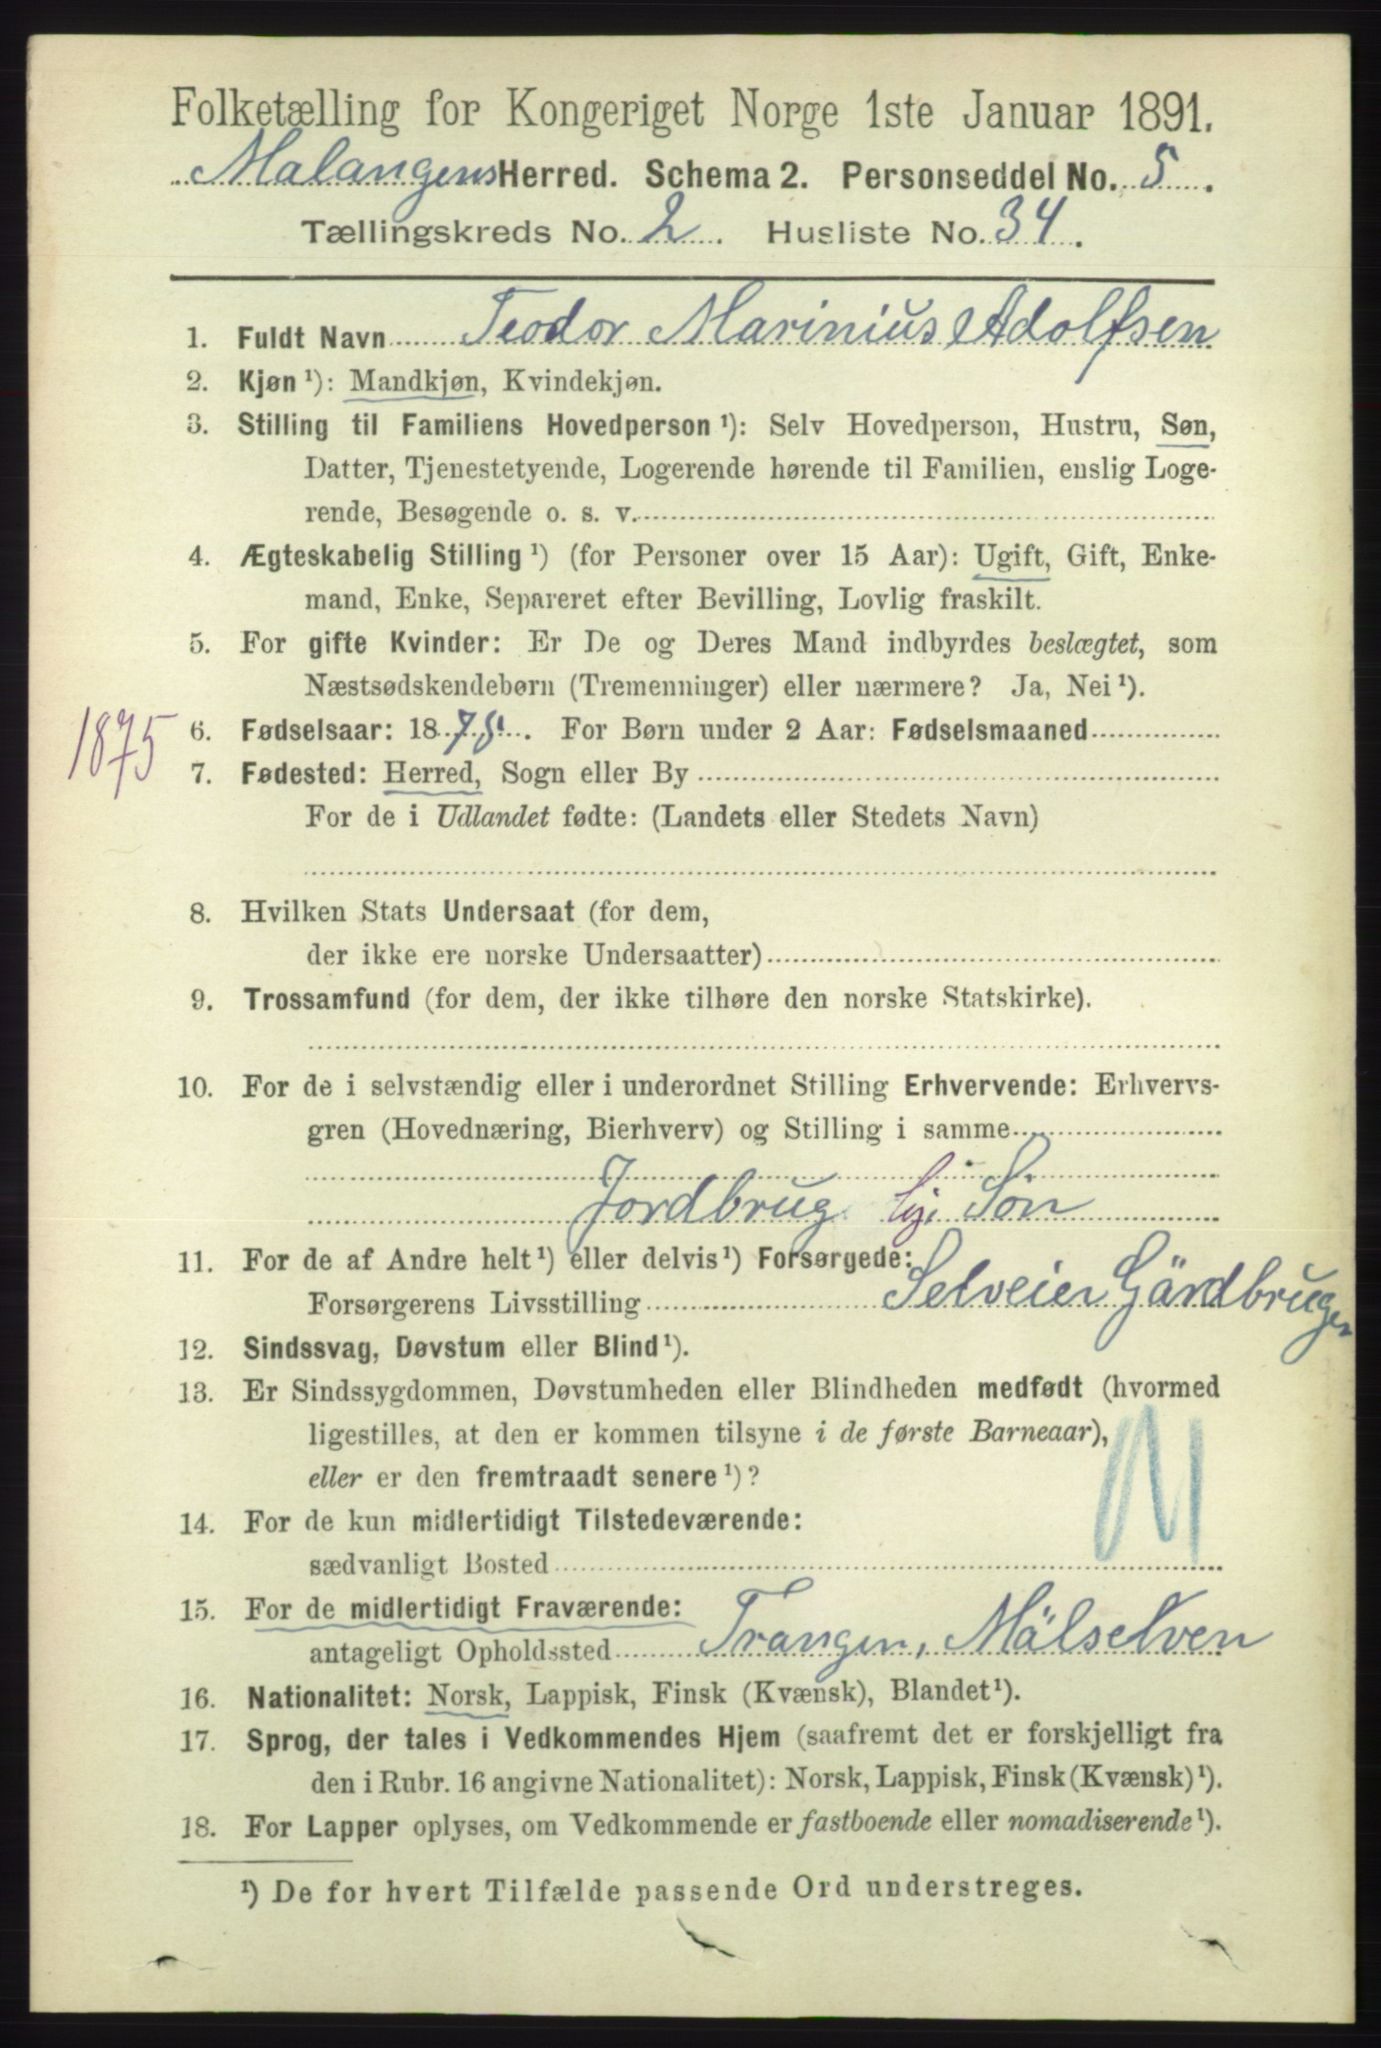 Folketælling for Kongeriget Norge 1ste Januar 1891.
Malangens Herred. Schema 2. Personseddel No. 5.
Tællingskreds No. 2. Husliste No. 34.
1. Fuldt Navn Teodor Marinius Adolfsen
2. Kjøn ¹): Mandkjøn, Kvindekjøn.
3. Stilling til Familiens Hovedperson ¹): Selv Hovedperson, Hustru, Søn,
Datter, Tjenestetyende, Logerende hørende til Familien, enslig Loge-
rende, Besøgende o. s. v.
4. Ægteskabelig Stilling ¹) (for Personer over 15 Aar): Ugift, Gift, Enke-
mand, Enke, Separeret efter Bevilling, Lovlig fraskilt.
5. For gifte Kvinder: Er De og Deres Mand indbyrdes beslægtet, som
Næstsødskendebørn (Tremenninger) eller nærmere? Ja, Nei ¹).
1875 6. Fødselsaar: 1875. For Børn under 2 Aar: Fødselsmaaned
7. Fødested: Herred, Sogn eller By
For de i Udlandet fødte: (Landets eller Stedets Navn)
8. Hvilken Stats Undersaat (for dem,
der ikke ere norske Undersaatter)
9. Trossamfund (for dem, der ikke tilhøre den norske Statskirke).
10. For de i selvstændig eller i underordnet Stilling Erhvervende: Erhvervs-
gren (Hovednæring, Bierhverv) og Stilling i samme
Jordbrug Søn
11. For de af Andre helt ¹) eller delvis ¹) Forsørgede:
Forsørgerens Livsstilling Selveier Gårdbruger
12. Sindssvag, Døvstum eller Blind ¹).
13. Er Sindssygdommen, Døvstumheden eller Blindheden medfødt (hvormed
ligestilles, at den er kommen tilsyne i de første Barneaar),
eller er den fremtraadt senere ¹)?
N
14. For de kun midlertidigt Tilstedeværende:
sædvanligt Bosted
15. For de midlertidigt Fraværende:
antageligt Opholdssted Trangen, Målselven
16. Nationalitet: Norsk, Lappisk, Finsk (Kvænsk), Blandet ¹).
17. Sprog, der tales i Vedkommendes Hjem (saafremt det er forskjelligt fra
den i Rubr. 16 angivne Nationalitet): Norsk, Lappisk, Finsk (Kvænsk) ¹).
18. For Lapper oplyses, om Vedkommende er fastboende eller nomadiserende ¹).
¹) De for hvert Tilfælde passende Ord understreges.